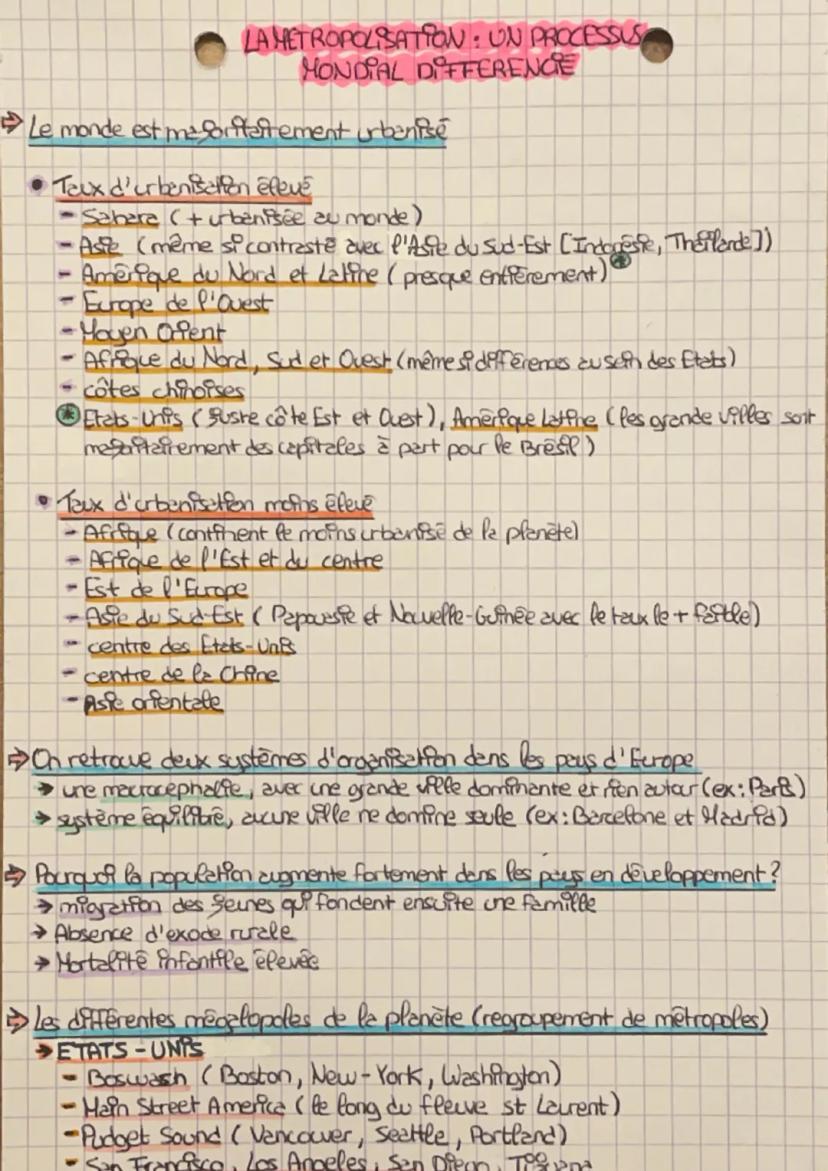 LA METROPOLISATION : UN PROCESSUS
MONDIAL DIFFERENCIÉ
⇨ Le monde est majoritairement urbanisé
• Taux d'urbanisation élevé
- Sahara (+ urbanisée au monde)
- Asie (même si contraste avec l'Asie du Sud-Est [Indonésie, Thaïlande])
- Amérique du Nord et Latine (presque entièrement) *
- Europe de l'Ouest
- Moyen Orient
- Afrique du Nord, Sud et Ouest (même si différences au sein des Etats)
- côtes chinoises
* Etats-Unis (juste côte Est et Ouest), Amérique Latine (les grande villes sont
majoritairement des capitales à part pour le Brésil)
• Taux d'urbanisation moins élevé
- Afrique (continent le moins urbanisé de la planète)
- Afrique de l'Est et du centre
- Est de l'Europe
- Asie du Sud-Est (Papouasie et Nouvelle-Guinée avec le taux le + faible)
- centre des Etats-Unis
- centre de la Chine
- Asie orientale
⇨ On retrouve deux systèmes d'organisation dans les pays d'Europe
→ une macrocéphalie, avec une grande ville dominante et rien autour (ex: Paris)
→ système équilibré, aucune ville ne domine seule (ex: Barcelone et Madrid)
⇨ Pourquoi la population augmente fortement dans les pays en développement?
→ migration des jeunes qui fondent ensuite une famille
→ Absence d'exode rurale
→ Mortalité infantile élevée
⇨ Les différentes mégalopoles de la planète (regroupement de métropoles)
→ ETATS-UNIS
- Boswash (Boston, New-York, Washington)
- Main Street America (le long du fleuve st Laurent)
- Pudget Sound (Vancouver, Seattle, Portland)
- San Francisco, Los Angeles, San Diego, Tijuana